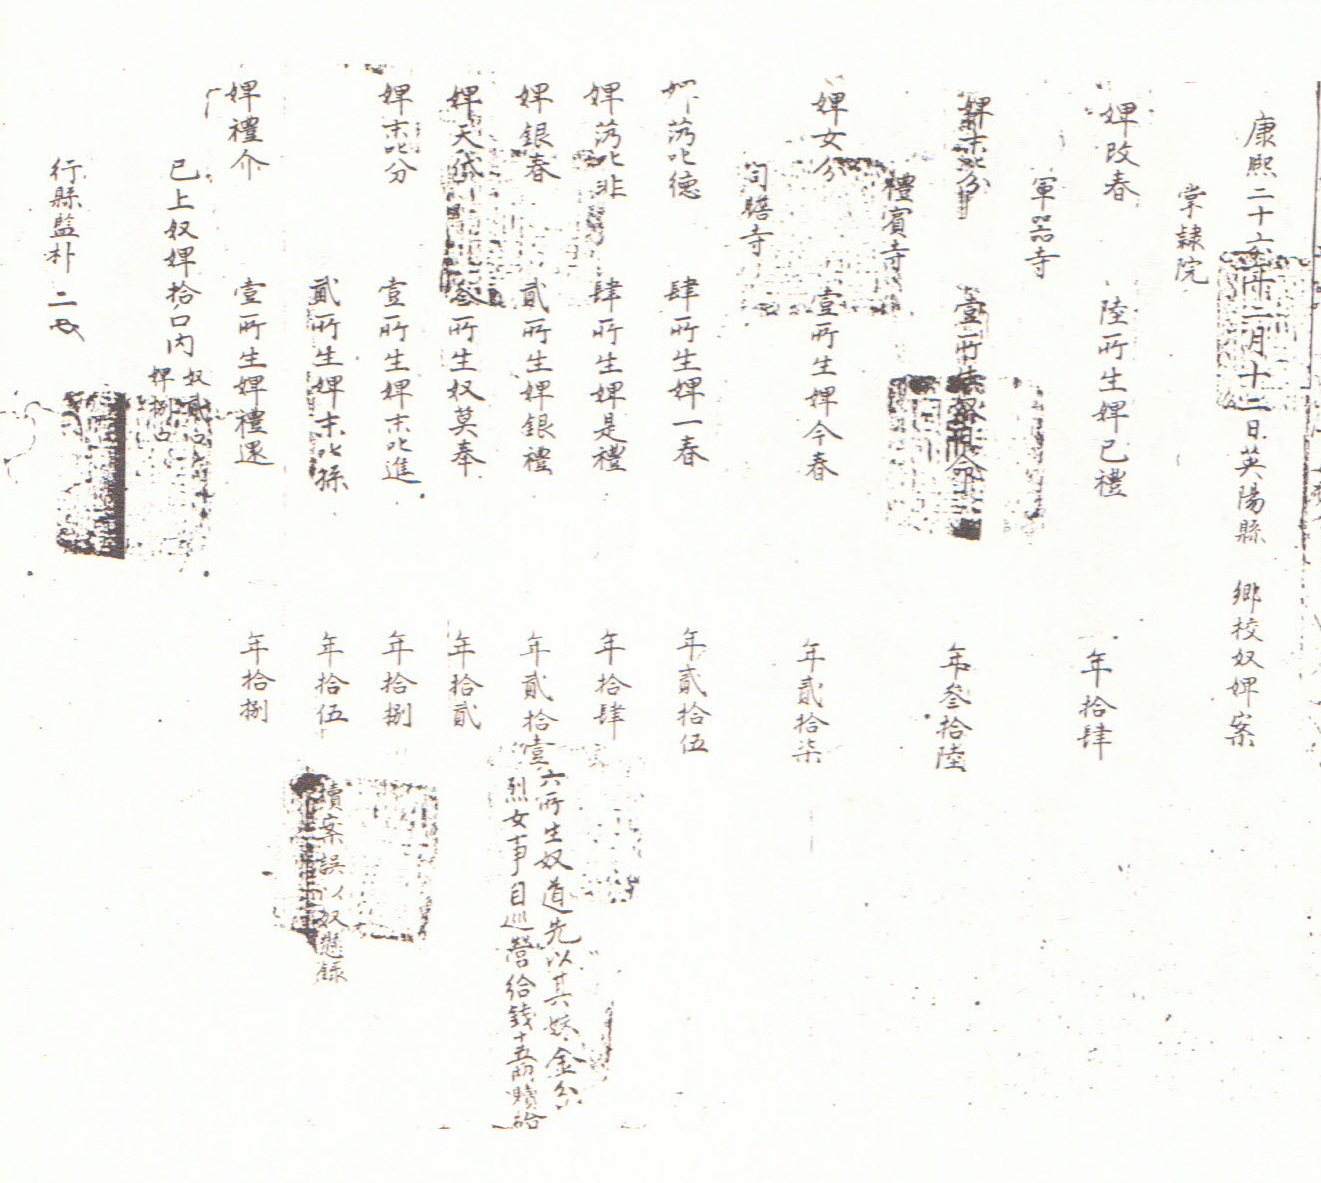 康熙二十六年二月十二日英陽縣 鄕校奴婢案
掌隷院
婢改春 陸所生婢已禮 年拾肆
軍器寺
婢末叱分 壹所生 年叁拾陸
禮賓寺
婢女分 壹所生婢今春 年貳拾柒
司贍寺
㖙德 肆所生婢一春 年貳拾伍
婢㖙非 肆所生婢是禮 年拾肆
婢銀春 貳所生婢銀禮 年貳拾壹
六所生奴道先以其 金分
烈女事目巡營給錢十五兩贖
婢天 叁所生奴莫奉 年拾貳
婢末叱分 壹所生婢末叱進 年拾捌
貳所生婢末叱孫 年拾伍
續案誤以奴懸錄
婢禮介 壹所生婢禮還 年拾捌
已上奴婢拾口內 奴貳口
婢捌口
行縣監朴